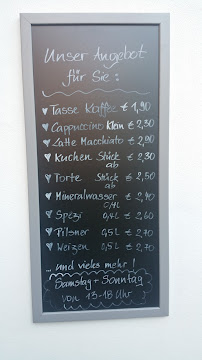 Unser Angebot
für Sie :
Tasse Kaffee € 1,90
Cappuccino Klein € 2,30
Latte Macchiato € 2,90
Kuchen Stück ab € 2,30
Torte Stück ab € 2,50
Mineralwasser 0,4L € 2,40
Spezi 0,4L € 2,60
Pilsner 0,5L € 2,70
Weizen 0,5L € 2,70
... und vieles mehr !
Samstag + Sonntag
von 13-18 Uhr